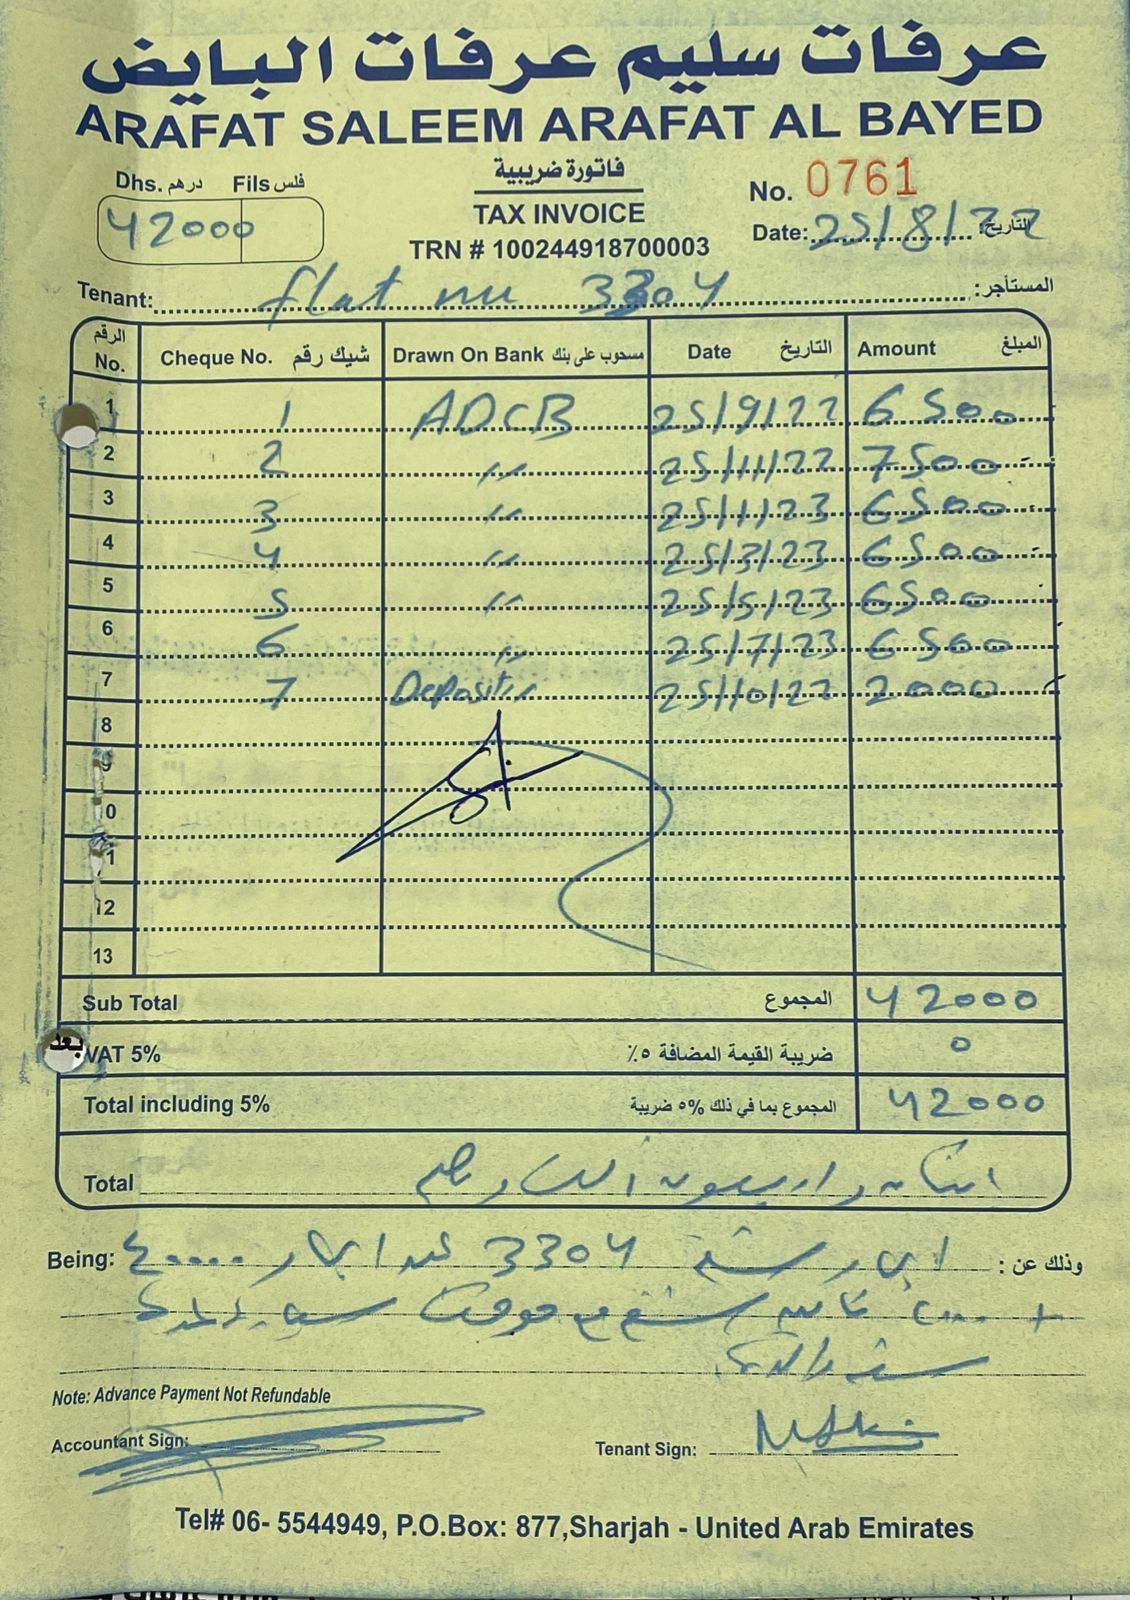 عرفات سليم عرفات البايض
ARAFAT SALEEM ARAFAT AL BAYED
Dhs. درهم Fils فلس
42000
فاتورة ضريبية
TAX INVOICE
TRN # 100244918700003
No. 0761
Date: 25/8/22 التاريخ:
Tenant: flat nu 3304 المستأجر:
الرقم No. Cheque No. شيك رقم Drawn On Bank مسحوب على بنك Date التاريخ Amount المبلغ
1 1 ADCB 25/9/22 6500
2 2 〃 25/11/22 7500
3 3 〃 25/1/23 6500
4 4 〃 25/3/23 6500
5 5 〃 25/5/23 6500
6 6 〃 25/7/23 6500
7 7 Deposit 〃 25/10/22 2000
8
9
10
11
12
13
Sub Total المجموع 42000
بعد
VAT 5% ضريبة القيمة المضافة ٥٪ 0
Total including 5% المجموع بما في ذلك ٥% ضريبة 42000
Total اثنان واربعون الف درهم
Being: ايجار شقة 3304 عقد ايجار ٤٠٠٠٠ وذلك عن :
+ ٢٠٠٠ تامين
Note: Advance Payment Not Refundable
Accountant Sign:
Tenant Sign:
Tel# 06- 5544949, P.O.Box: 877,Sharjah - United Arab Emirates